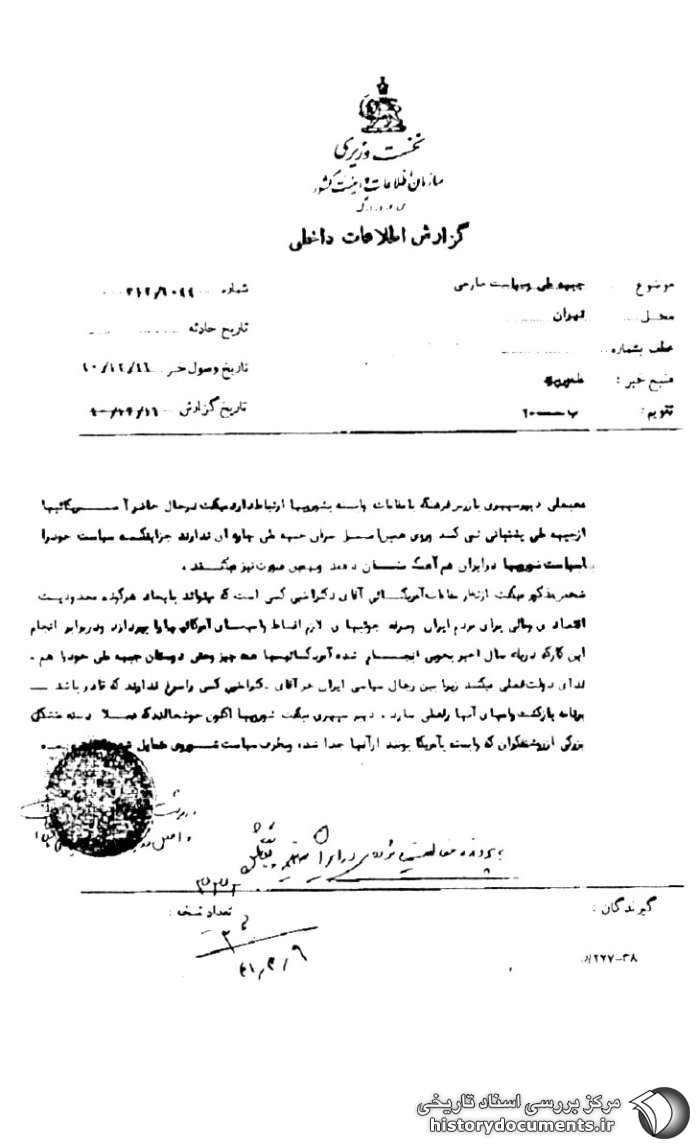 نخست وزیری
سازمان اطلاعات و امنیت کشور
گزارش اطلاعات داخلی
موضوع جبهه ملی وسیاست خارجی
شماره ۳۱۲/۶۰۹۹
محل تهران
تاریخ حادثه
عطف بشماره
تاریخ وصول خبر
منبع خبر :
تقویم : ب
تاریخ گزارش
محمدعلی دبیرسپهری بازرس فرهنگ بامقامات وابسته بشورویها ارتباط دارد میگفت درحال حاضر آمریکائیها
ازجبهه ملی پشتیبانی نمی کنند وروی همین اصل سران جبهه ملی چاره ای ندارند جزاینکه سیاست خودرا
باسیاست شورویها درایران هم آهنگ نشان دهند
شخص مذکور میگفت ازنظر مقامات آمریکائی آقای دکترامینی کسی است که میتواند باایجاد هرگونه محدودیت
اقتصادی ومالی برای مردم ایران وصرفه جوئیهای لازم اقساط وامهای آمریکائیها را بپردازد ودربرابر انجام
این کارکه دریک سال اخیر بخوبی انجام شده آمریکائیها همه چیز وحتی دوستان جبهه ملی خودرا هم
فدای دولت فعلی میکنند زیرا بین رجال سیاسی ایران جزآقای دکترامینی کسی راسراغ ندارند که قادر باشد
برنامه بازگشت وامهای آنها راعملی سازد . دبیر سپهری میگفت شورویها اکنون خوشحالند که عملا دسته متشکل
بزرگی ازروشنفکران که وابسته بآمریکا بودند ازآنها جدا شده وبطرف سیاست شوروی متمایل
گیرندگان :
تعداد نسخه :
۴۱/۳/۹
۲۷۷-۳۸
مرکز بررسی اسناد تاریخی
historydocuments.ir